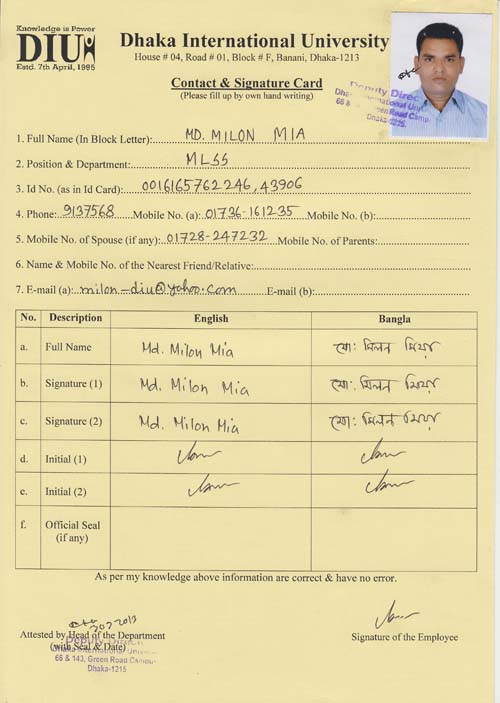 Knowledge is Power
DIU
Estd. 7th April, 1995
Dhaka International University
House # 04, Road # 01, Block # F, Banani, Dhaka-1213
Contact & Signature Card
(Please fill up by own hand writing)
Deputy Direc
Dhaka International Univ
66 & Green Road Campu
Dhaka-1215.
1. Full Name (In Block Letter): MD. MILON MIA
2. Position & Department: MLSS
3. Id No. (as in Id Card): 0016165762246, 43906
4. Phone: 9137568 Mobile No. (a): 01736-161235 Mobile No. (b):
5. Mobile No. of Spouse (if any): 01728-247232 Mobile No. of Parents:
6. Name & Mobile No. of the Nearest Friend/Relative:
7. E-mail (a): milon-diu@yahoo.com E-mail (b):
No. Description English Bangla
a. Full Name Md. Milon Mia মো: মিলন মিয়া
b. Signature (1) Md. Milon Mia মো: মিলন মিয়া
c. Signature (2) Md. Milon Mia মো: মিলন মিয়া
d. Initial (1)
e. Initial (2)
f. Official Seal
(if any)
As per my knowledge above information are correct & have no error.
Attested by Head of the Department
(with Seal & Date)
Signature of the Employee
Deputy Direc
Dhaka International Univer
66 & 143, Green Road Campu
Dhaka-1215